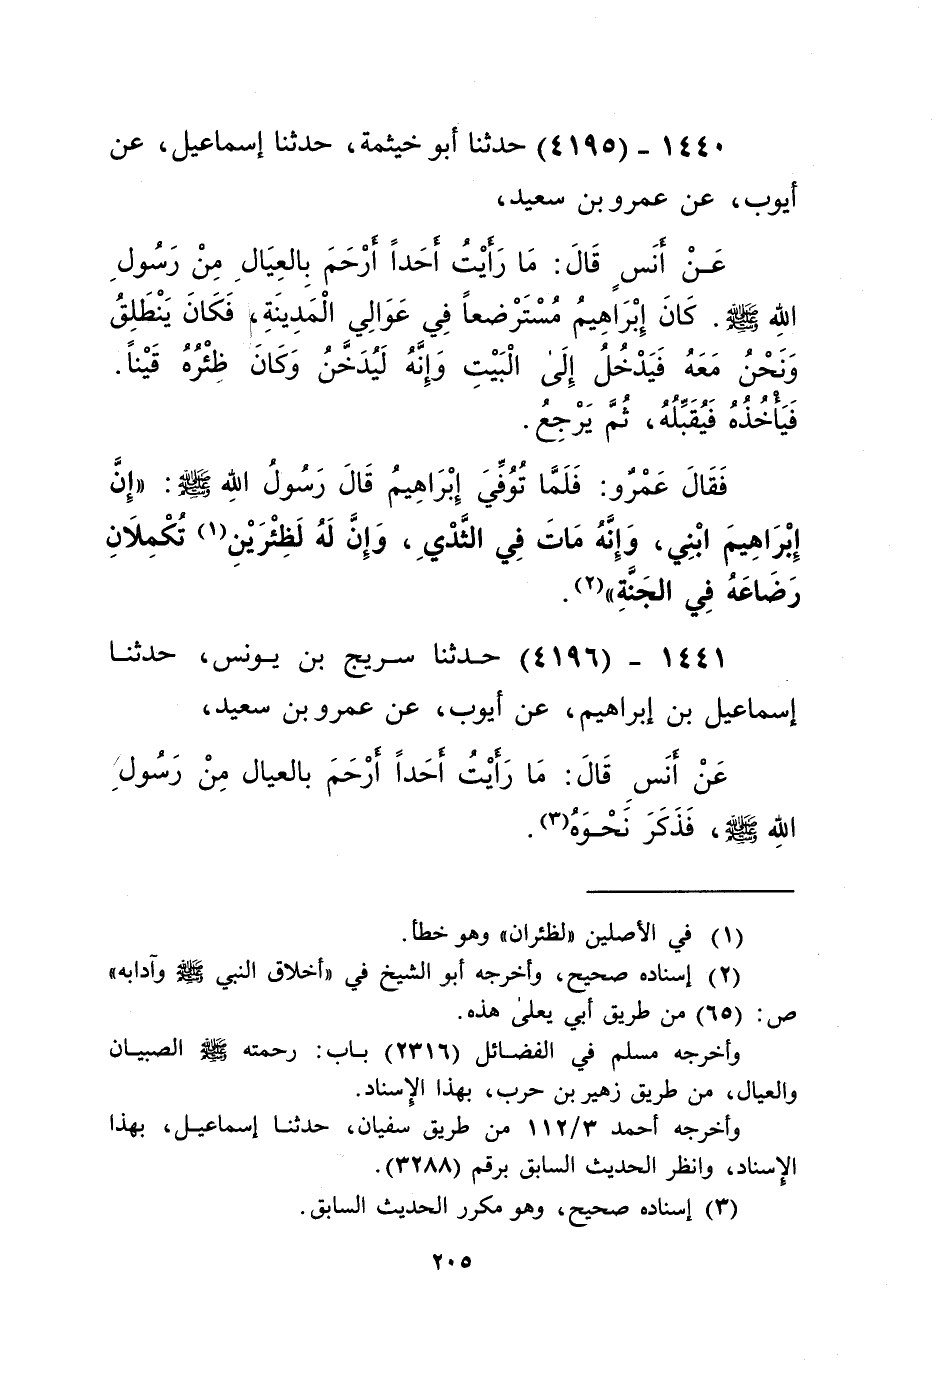 ١٤٤٠ - (٤١٩٥) حدثنا أبو خيثمة، حدثنا إسماعيل، عن
أيوب، عن عمرو بن سعيد،
عَنْ أَنَسٍ قَالَ: مَا رَأَيْتُ أَحَداً أَرْحَمَ بِالعِيَالِ مِنْ رَسُولِ
اللهِ ﷺ. كَانَ إِبْرَاهِيمُ مُسْتَرْضعاً فِي عَوَالِي الْمَدِينَةِ، فَكَانَ يَنْطَلِقُ
وَنَحْنُ مَعَهُ فَيَدْخُلُ إِلَىٰ الْبَيْتِ وَإِنَّهُ لَيُدَخَّنُ وَكَانَ ظِئْرُهُ قَيْناً.
فَيَأْخُذُهُ فَيُقَبِّلُهُ، ثُمَّ يَرْجِعُ.
فَقَالَ عَمْرٌو: فَلَمَّا تُوُفِّيَ إِبْرَاهِيمُ قَالَ رَسُولُ اللهِ ﷺ: «إِنَّ
إِبْرَاهِيمَ ابْنِي، وَإِنَّهُ مَاتَ فِي الثَّدْيِ، وَإِنَّ لَهُ لَظِئْرَيْنِ(١) تُكْمِلَانِ
رَضَاعَهُ فِي الجَنَّةِ»(٢).
١٤٤١ - (٤١٩٦) حدثنا سريج بن يونس، حدثنا
إسماعيل بن إبراهيم، عن أيوب، عن عمرو بن سعيد،
عَنْ أَنَسٍ قَالَ: مَا رَأَيْتُ أَحَداً أَرْحَمَ بالعيال مِنْ رَسُولِ
اللهِ ﷺ، فَذَكَرَ نَحْوَهُ(٣).
(١) في الأصلين «لظئران» وهو خطأ.
(٢) إسناده صحيح، وأخرجه أبو الشيخ في «أخلاق النبي ﷺ وآدابه»
ص: (٦٥) من طريق أبي يعلىٰ هذه.
وأخرجه مسلم في الفضائل (٢٣١٦) باب: رحمته ﷺ الصبيان
والعيال، من طريق زهير بن حرب، بهذا الإسناد.
وأخرجه أحمد ١١٢/٣ من طريق سفيان، حدثنا إسماعيل، بهذا
الإسناد، وانظر الحديث السابق برقم (٣٢٨٨).
(٣) إسناده صحيح، وهو مكرر الحديث السابق.
٢٠٥